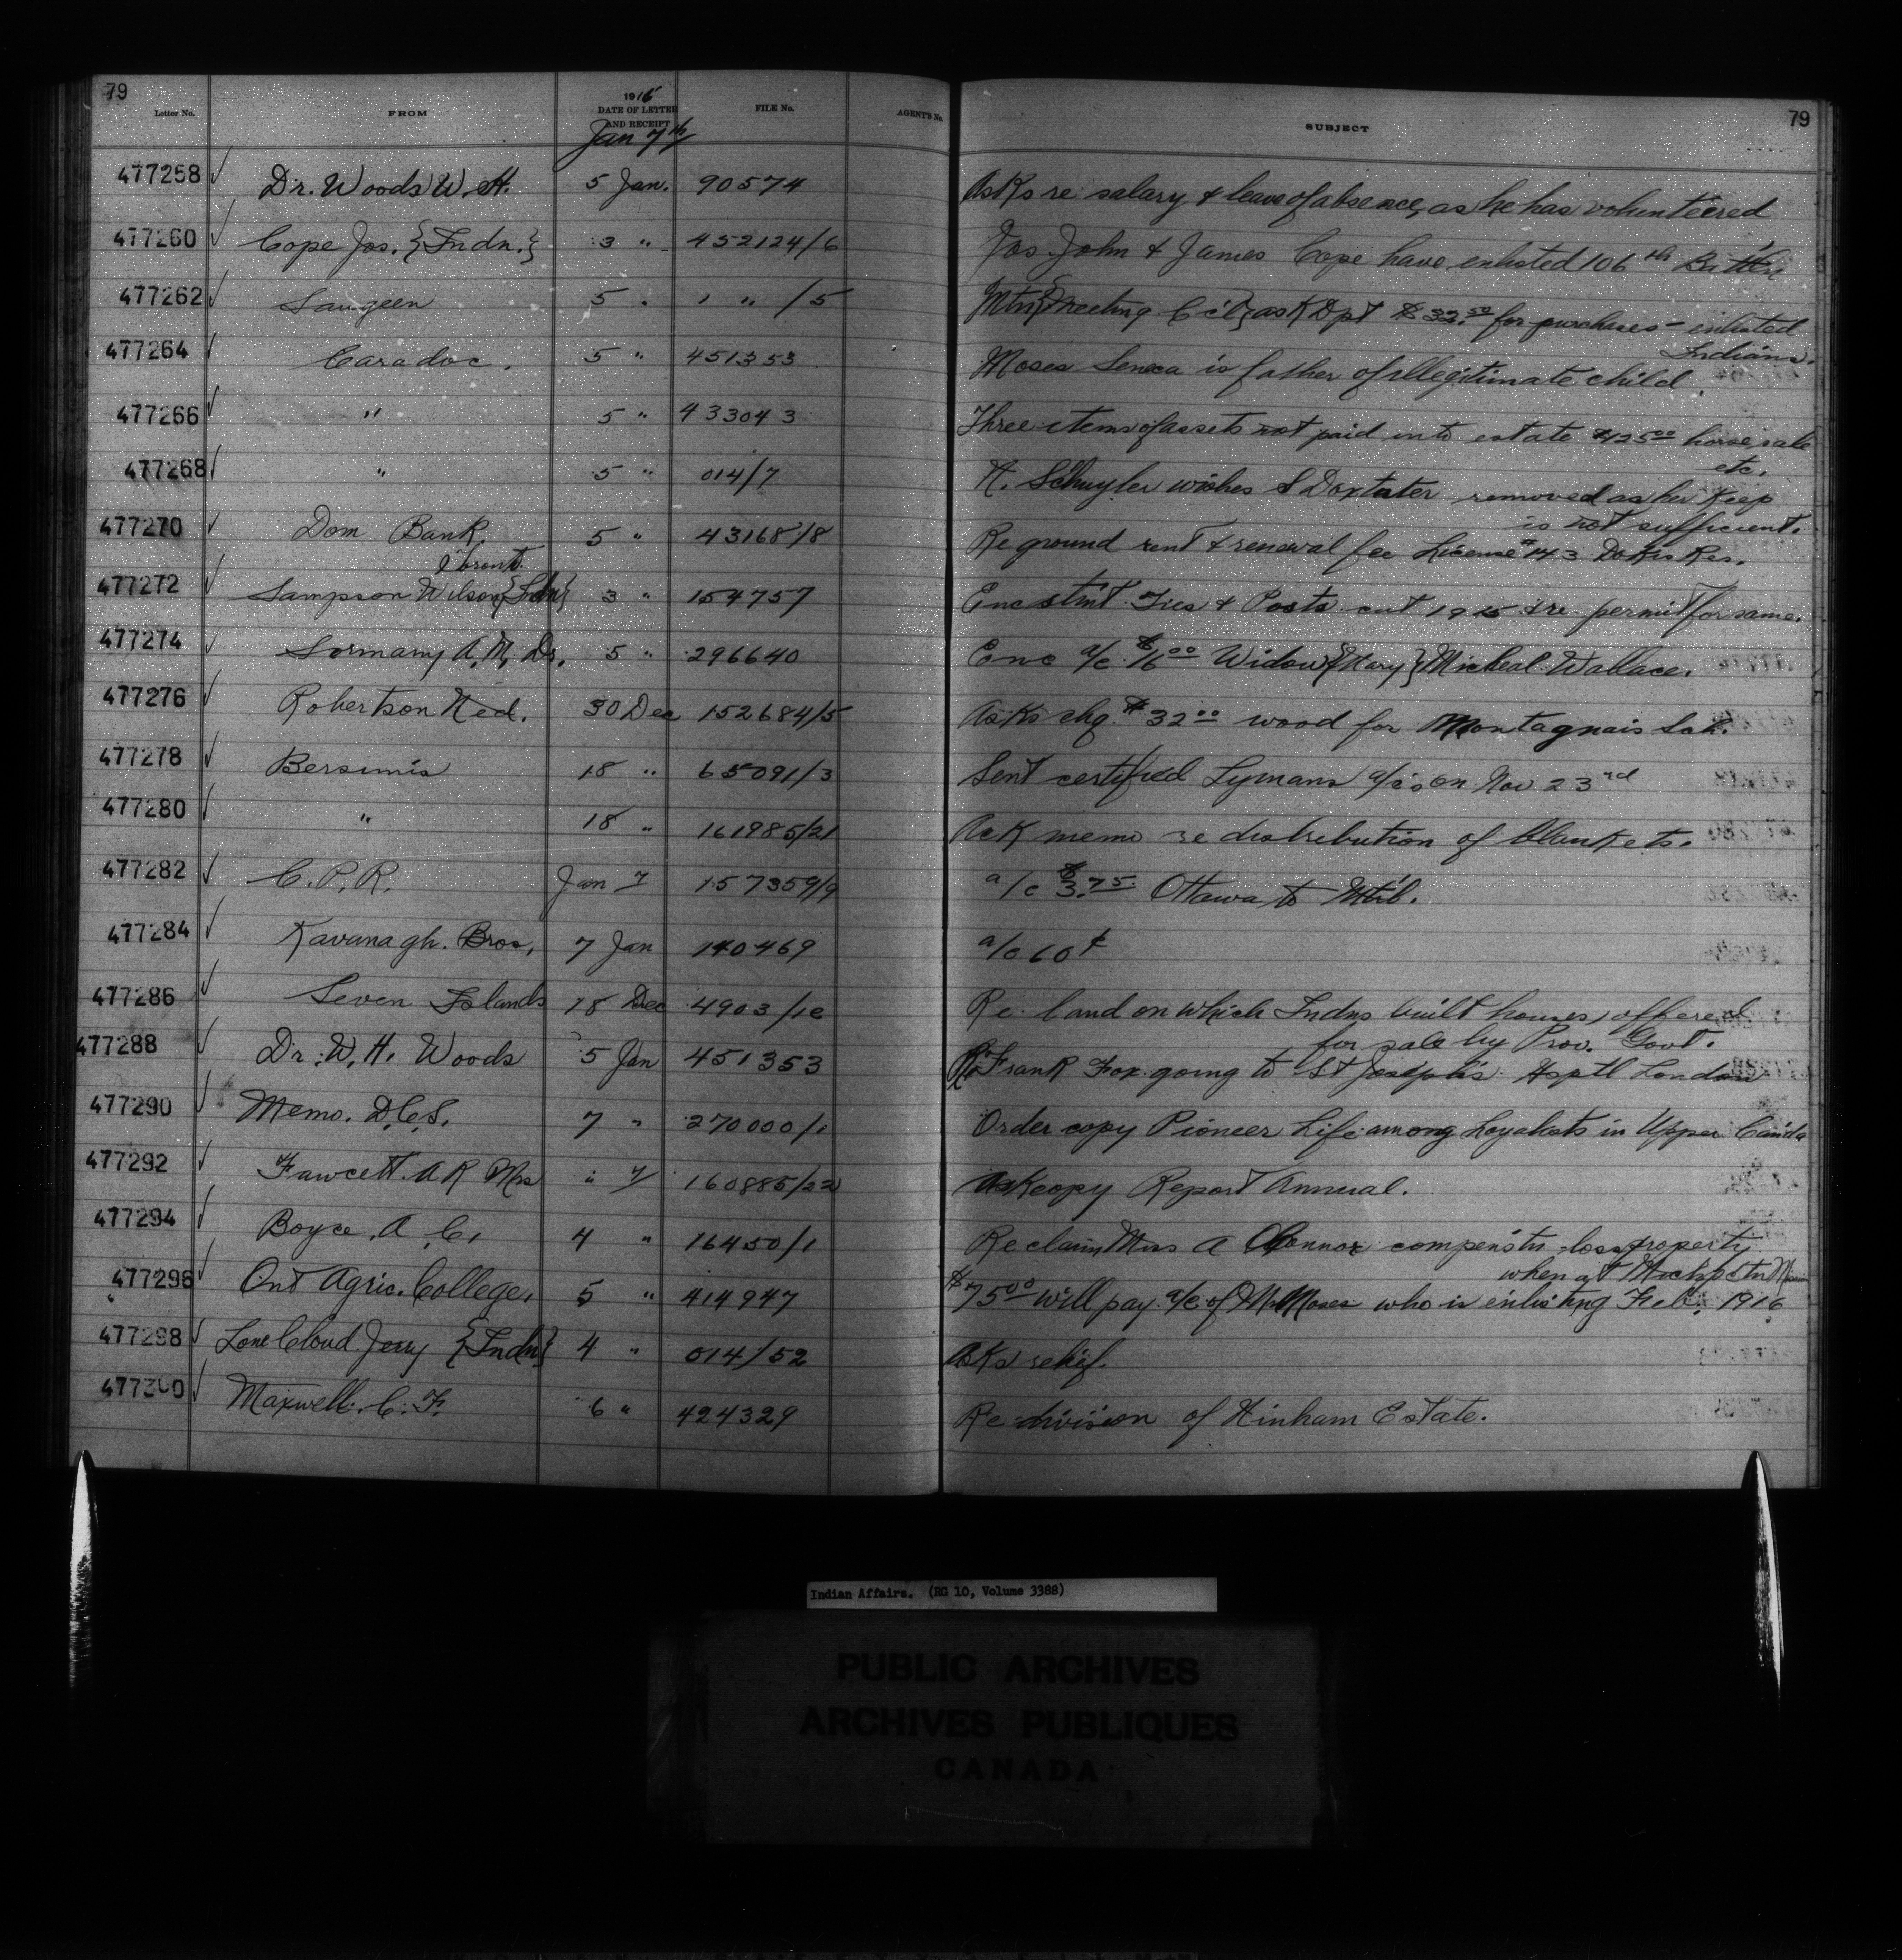 79
79
Letter No. FROM 1916 DATE OF LETTER AND RECEIPT FILE No. AGENT'S No. SUBJECT
Jan 7th
477258 Dr. Woods W. H. 5 Jan. 90574 Asks re salary & leave of absence, as he has volunteered
477260 Cope Jos. {Indn.} 3 " 452124/6 Jos John & James Cope have enlisted 106th Bttn
477262 Saugeen 5 " 1 " /5 Mtn {meeting C'c'l} ask Dpt $33.50 for purchases - enlisted
Indians.
477264 Caradoc. 5 " 451353 Moses Seneca is father of illegitimate child
477266 " 5 " 433043 Three items of assets not paid into estate $125.00 horse sale
etc.
477268 " 5 " 014/7 H. Schuyler wishes S Doxtater removed as her keep
is not sufficient.
477270 Dom Bank. 5 " 43168/8 Re ground rent & renewal fee License #143 Dokis Res.
Toront.
477272 Sampson Wilson {Indn} 3 " 154757 Enc stmt Ties & Posts cut 1915 & re permit for same.
477274 Sormany A, M, Dr. 5 " 296640 Enc a/c $16.00 Widow {Mary} Micheal Wallace.
477276 Robertson Ned. 30 Dec 152684/5 Asks chq. $32.00 wood for Montagnais Sch.
477278 Bersimis 18 " 65091/3 Sent certified Lymans a/c's on Nov 23rd
477280 " 18 " 161985/21 Ack memo re distribution of blankets.
477282 C. P. R. Jan 7 157359/9 a/c $3.75 Ottawa to Mtrl.
477284 Kavanagh Bros, 7 Jan 140469 a/c 60¢
477286 Seven Islands 18 Dec 4903/1c Re land on which Indns built houses, offered
for sale by Prov. Govt.
477288 Dr. W. H. Woods 5 Jan 451353 Re Frank Fox going to St Joseph's Hsptl London
477290 Memo. D.C.S. 7 " 270000/1 Order copy Pioneer Life among Loyalists in Upper Can'da
477292 Fawcett. A R Mrs " 7 160885/22 Ask copy Report Annual.
477294 Boyce, A. C, 4 " 16450/1 Re claim Miss A O'Connor compens'tn loss property
when at
477296 Ont Agric. College, 5 " 414947 $75.00 will pay a/c of Mr Moses who is enlisting Feb. 1916
477298 Lone Cloud Jerry {Indn} 4 " 014/52 Asks relief.
477300 Maxwell. C. F. 6 " 424329 Re division of Hinham Estate.
Indian Affairs. (RG 10, Volume 3388)
PUBLIC ARCHIVES
ARCHIVES PUBLIQUES
CANADA